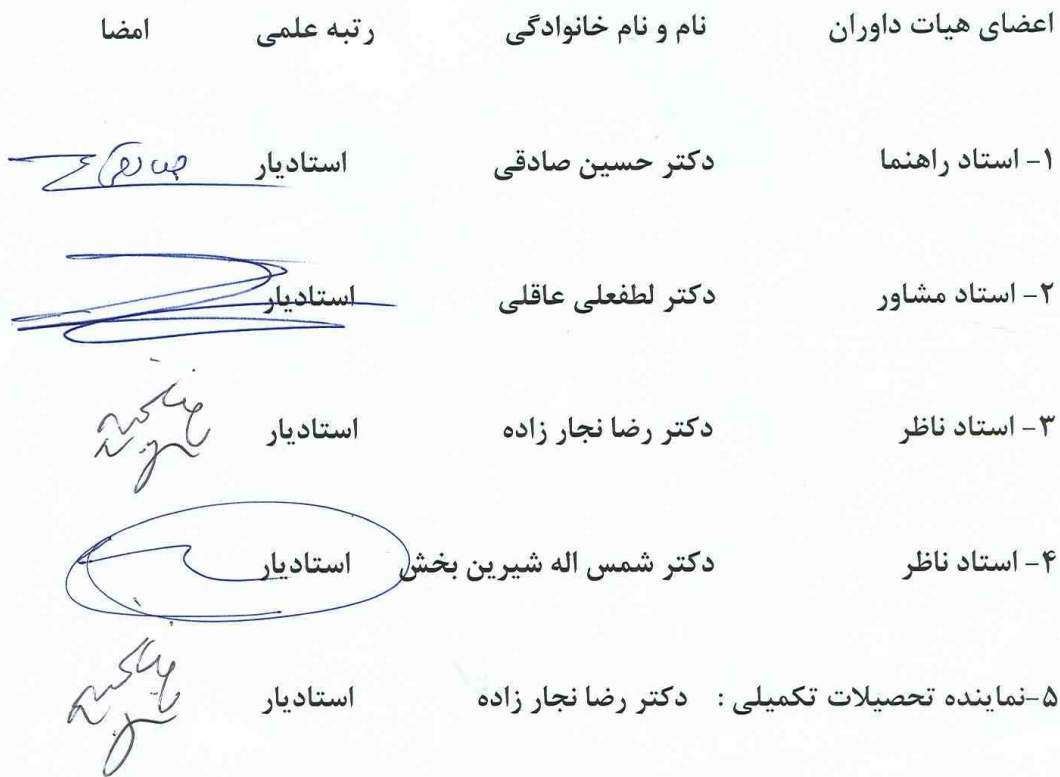 اعضای هیات داوران نام و نام خانوادگی رتبه علمی امضا
۱- استاد راهنما دکتر حسین صادقی استادیار
۲- استاد مشاور دکتر لطفعلی عاقلی استادیار
۳- استاد ناظر دکتر رضا نجار زاده استادیار
۴- استاد ناظر دکتر شمس اله شیرین بخش استادیار
۵-نماینده تحصیلات تکمیلی : دکتر رضا نجار زاده استادیار